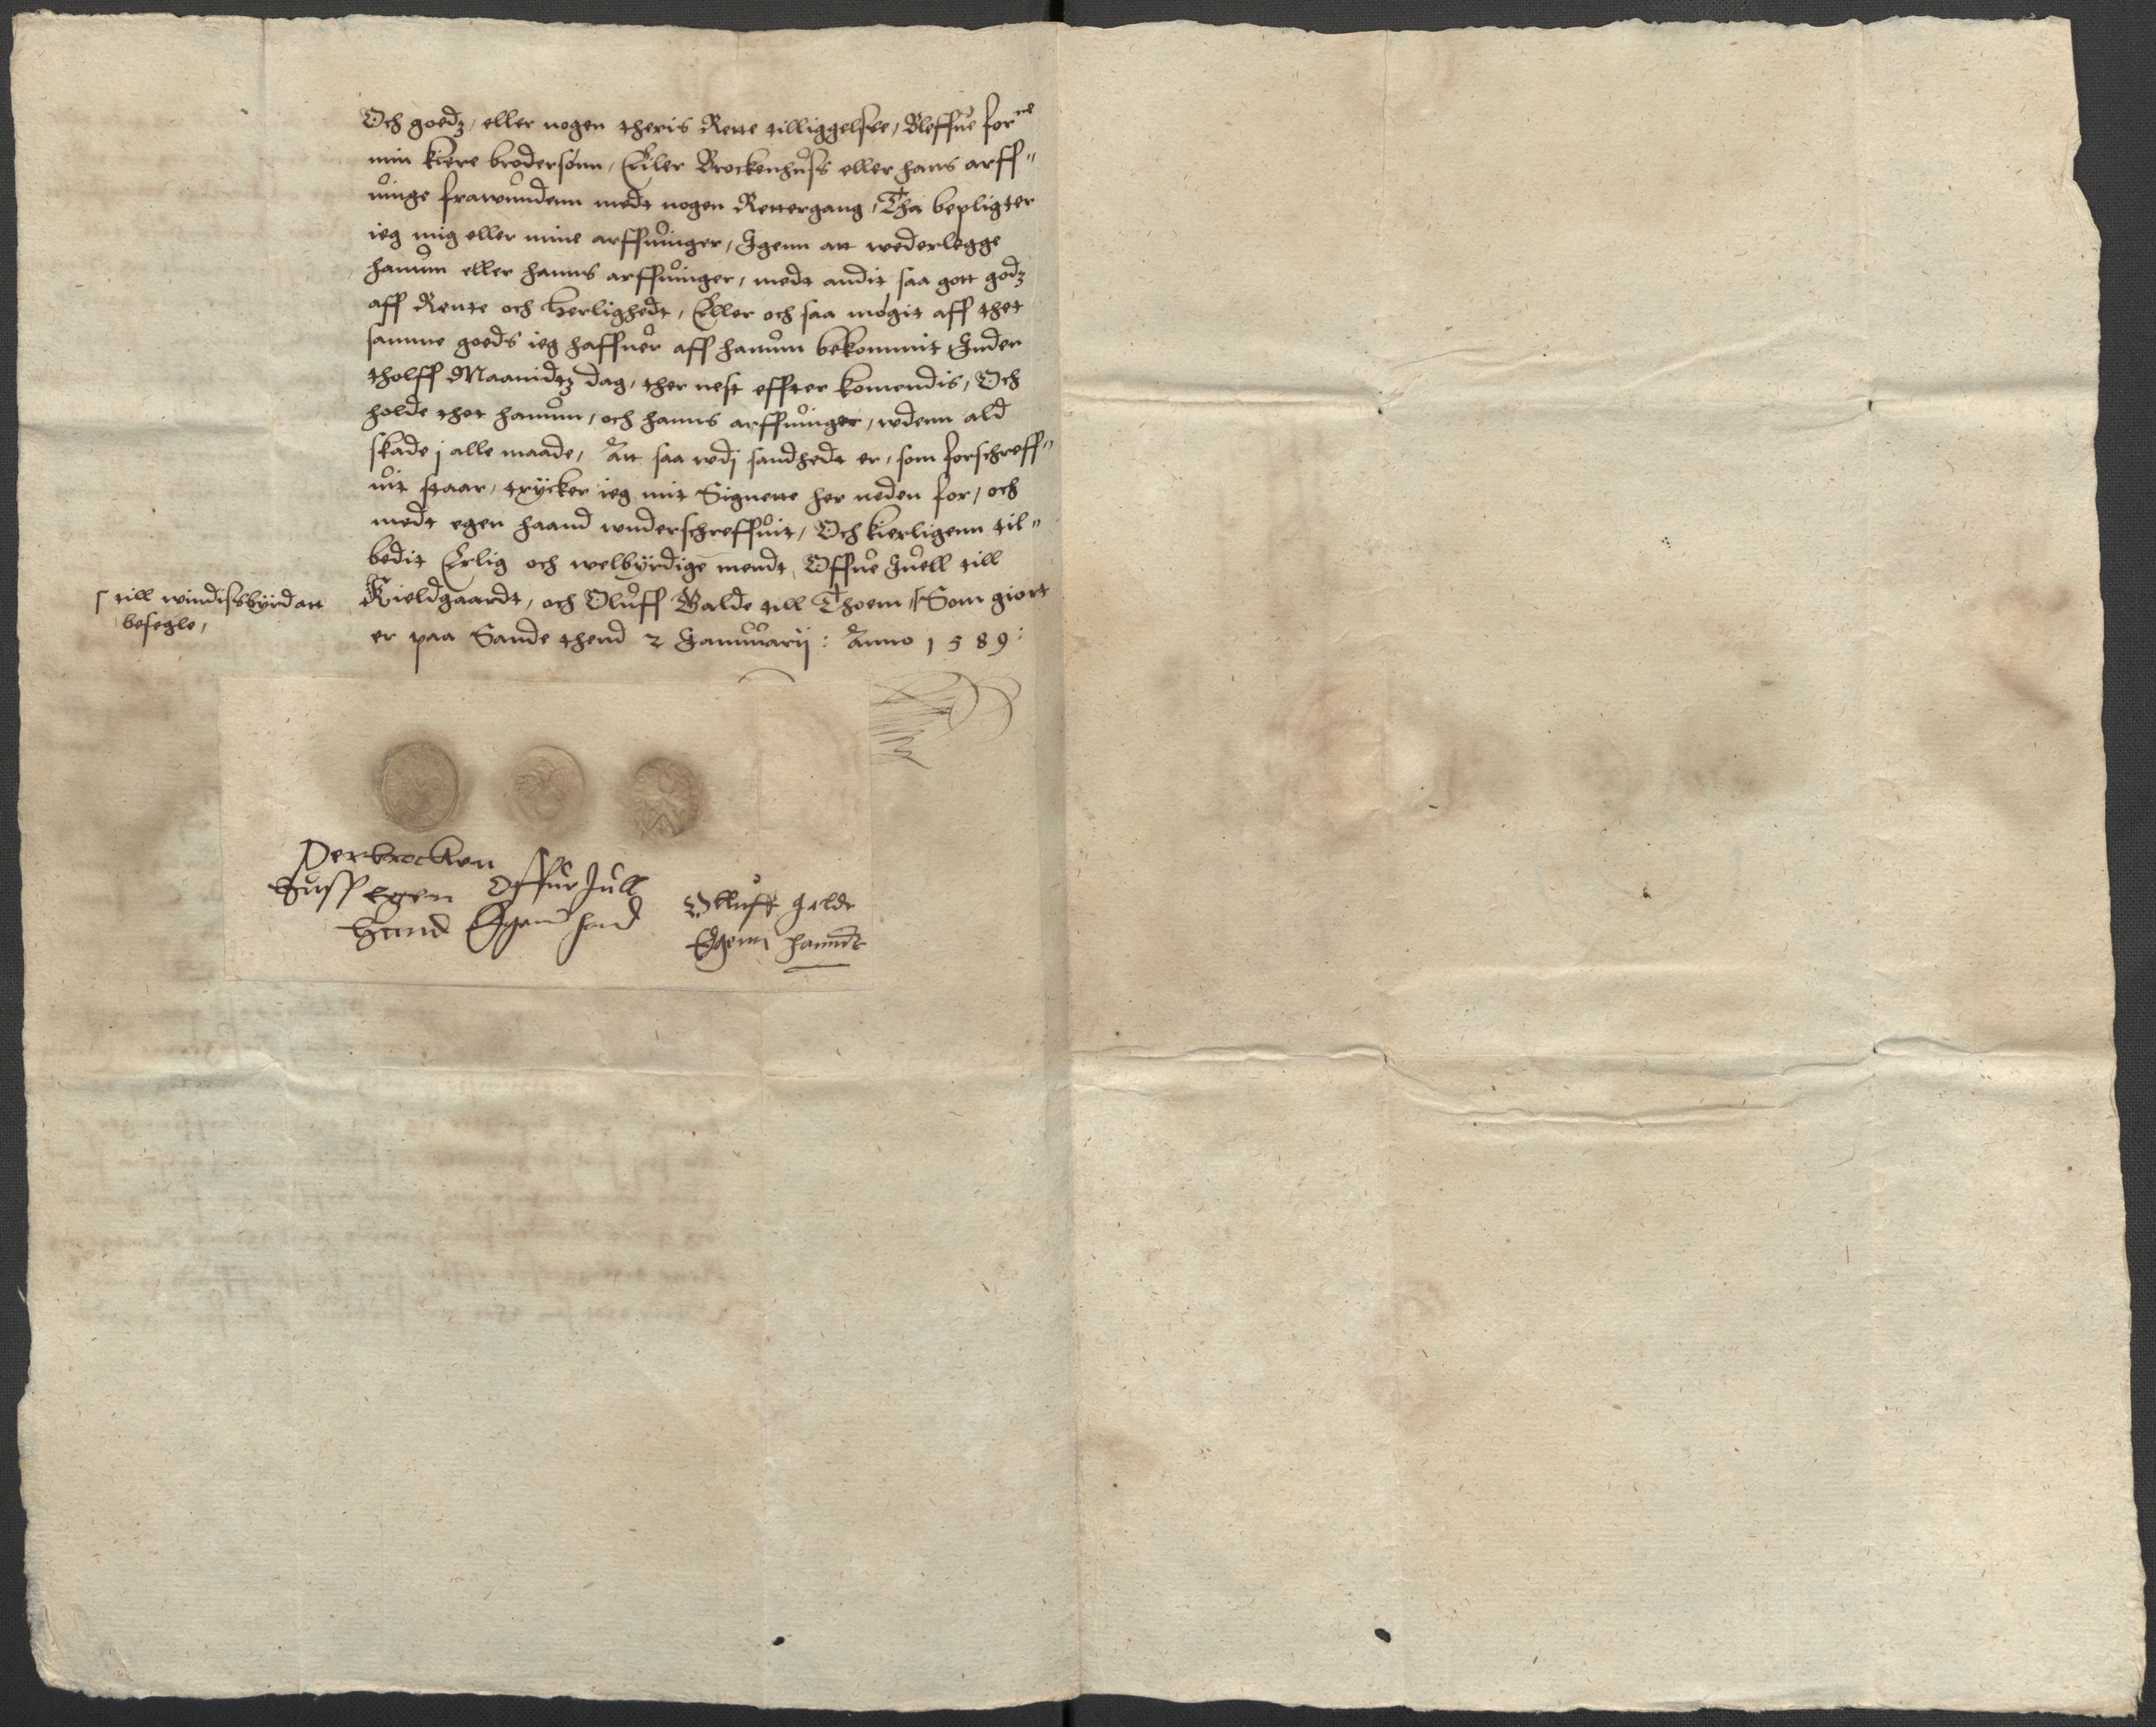 Och goedz, eller nogen theris Rette tilliggelsse, Bleffue for^ne
min kiere brodersønn, Eiler Brockenhuss eller hans arff-
uinge frawundenn medt nogen Rettergang, Tha bepligter
ieg mig eller mine arffuinger, Igenn att wederlegge
hanum eller hanns arffuinger, medt andit saa gott godz
aff Rente och herlighedt, Eller och saa møgit aff thet
samme goeds ieg haffuer aff hanum bekommit, Inden
tholff Maanidtz dag, ther nest effter komendis, Och
holde thet hanum, och hanns arffuinger, wdenn ald
skade j alle maade, Att saa wdj sandhedt er, som forschreff-
uit staar, trycker ieg mit Signette her neden for, och
medt egen haand wnderschreffuit, Och kierligenn til-
bedit Erlig och welbyrdige mendt, Offue Juell till
Kieldgaardt, och Oluff Galde till Thoem, ſSom giort
ſ till windissbyrd att
besegle,
er paa Sande thend 2 Januuarij: Anno 1589:
Per brocken
huss egen
hand
Offue Jull
Egen hand
Olluff galde
Egenn hanndt